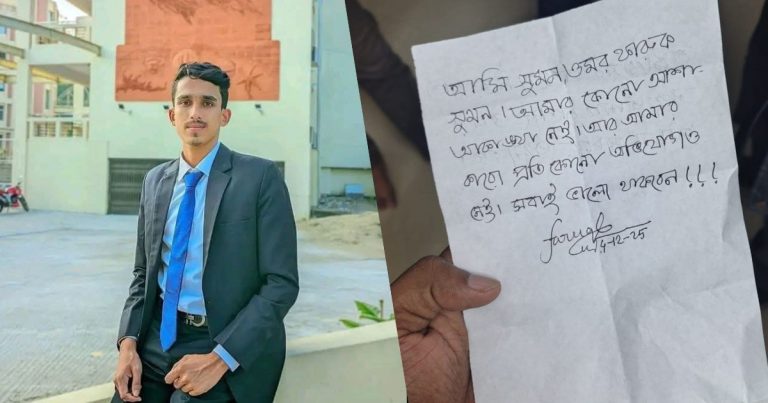 আমি সুমন। ওমর ফারুক
সুমন। আমার কোনো আশা-
আকাঙ্খা নেই। আর আমার
কারো প্রতি কোনো অভিযোগও
নেই। সবাই ভালো থাকবেন!!!
4-12-25